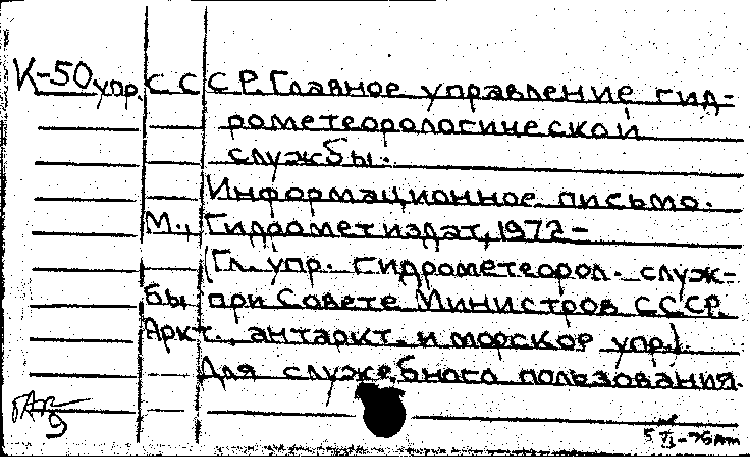 К-50 упр. СССР. Главное управление гид-
рометеорологической
службы.
Информационное письмо.
М., Гидрометиздат, 1972 –
(Гл. упр. гидрометеорол. служ-
бы при Совете Министров СССР.
Аркт., антаркт. и морское упр.).
Для служебного пользования.
9